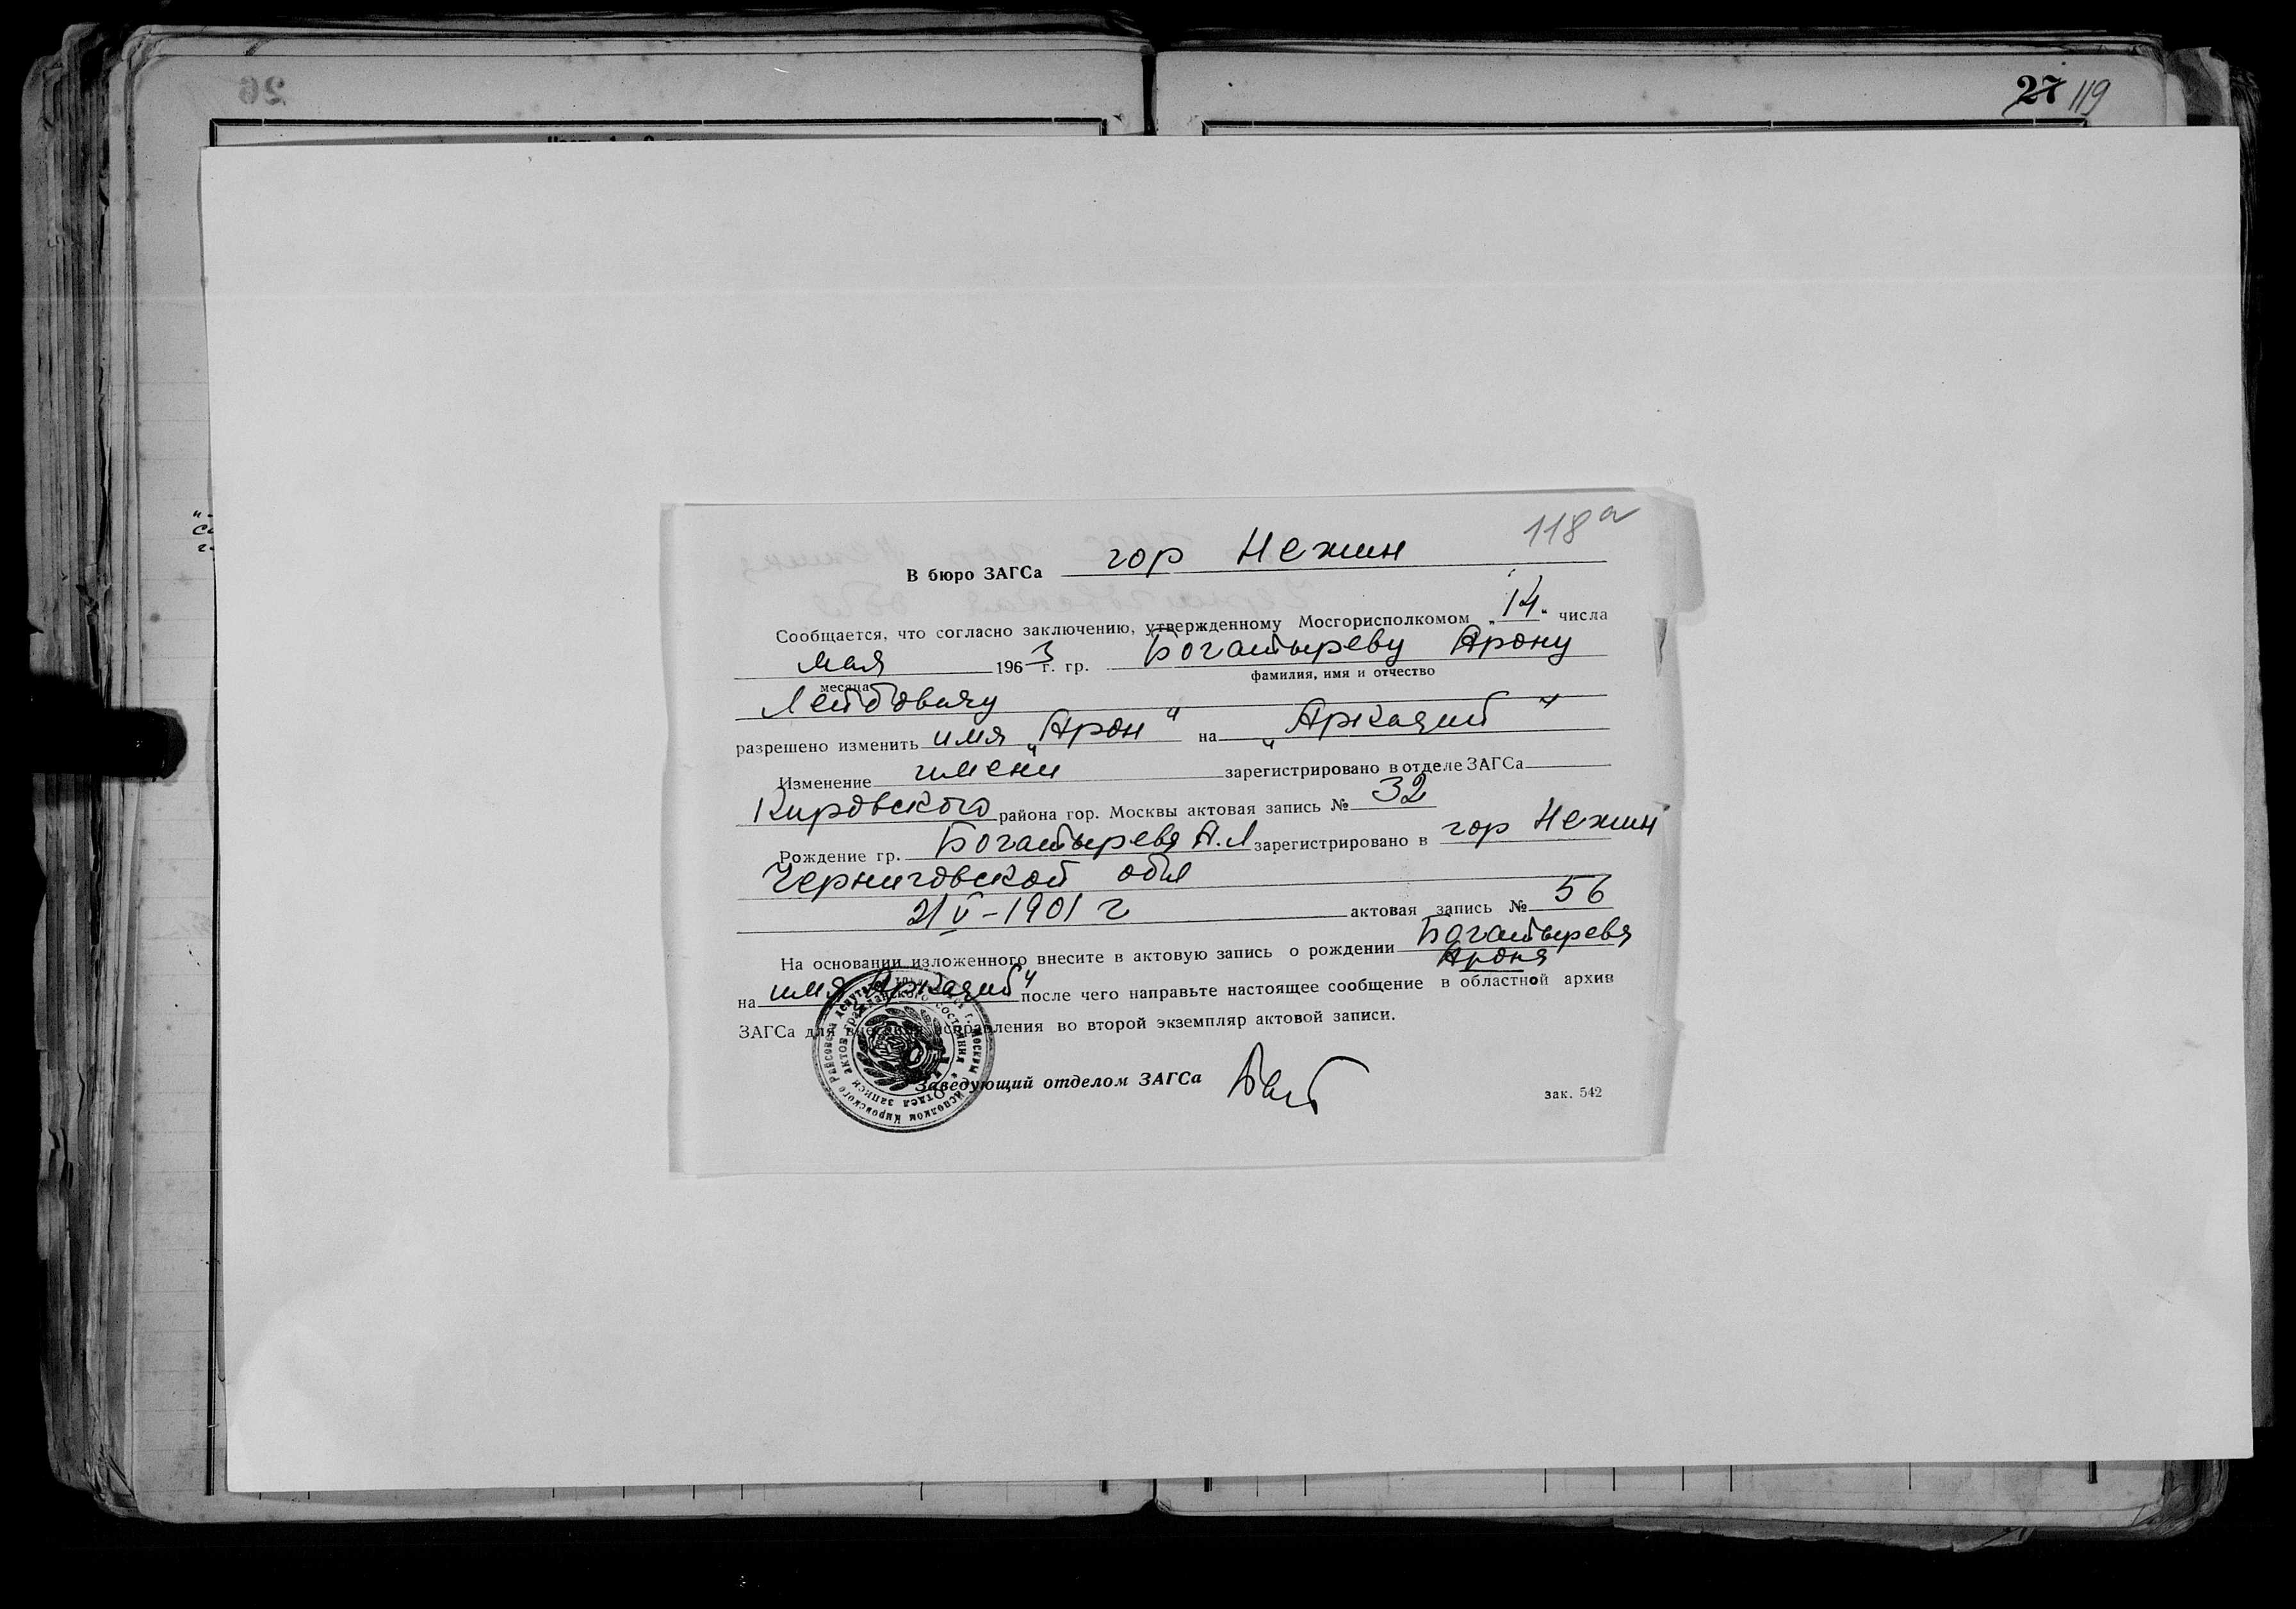 26
27 119
118а
В бюро ЗАГСа гор Нежин
Сообщается, что согласно заключению, утвержденному Мосгорисполкомом „14" числа
мая 1963 г. гр. Богатыреву Арону
месяца фамилия, имя и отчество
Лейбовичу
разрешено изменить имя „Арон" на „Аркадий"
Изменение имени зарегистрировано в отделе ЗАГСа
Кировского района гор. Москвы актовая запись № 32
Рождение гр. Богатырева А.Л зарегистрировано в гор Нежин
Черниговской обл
21 V – 1901 г актовая запись № 56
На основании изложенного внесите в актовую запись о рождении Богатырева
Арона
на имя Аркадий" после чего направьте настоящее сообщение в областной архив
ЗАГСа для внесения исправления во второй экземпляр актовой записи.
Заведующий отделом ЗАГСа
зак. 542